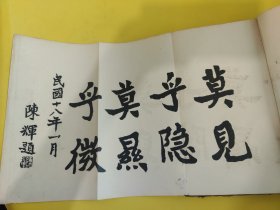 莫見
乎隐
莫顯
乎微
民國十八年一月
陳輝題